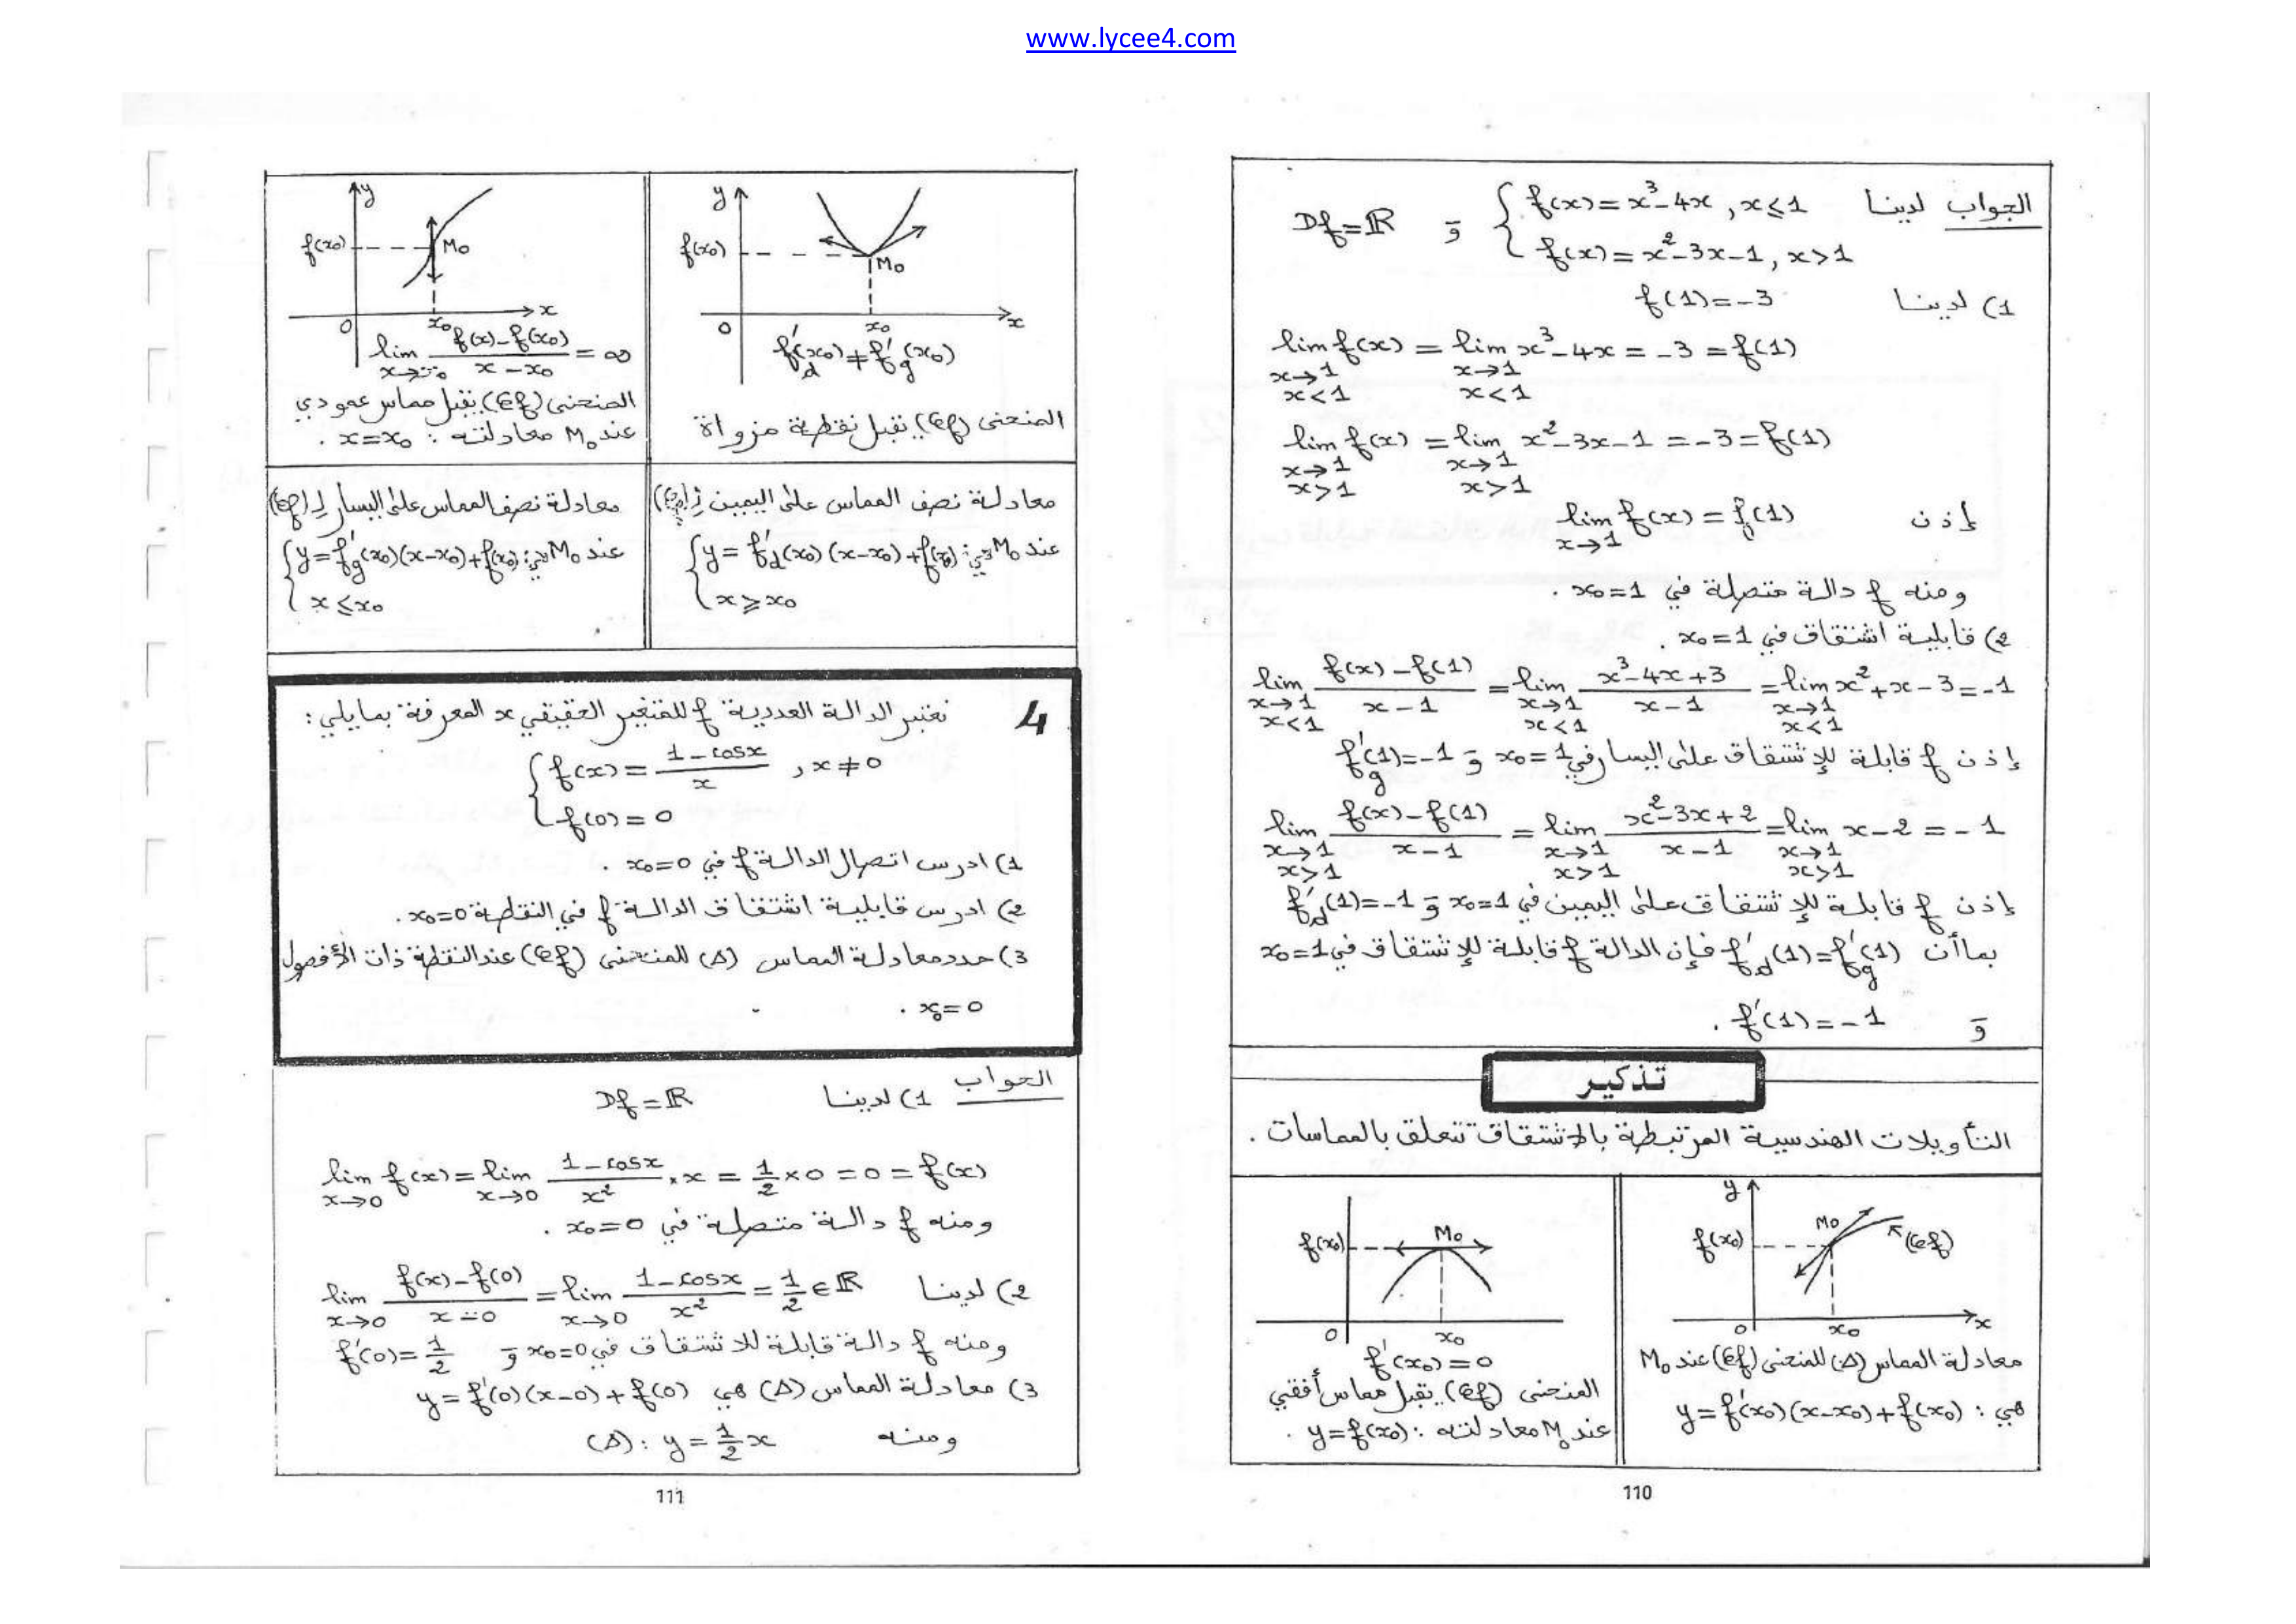 www.lycee4.com
الجواب لدينا { f(x) = x³-4x , x ≤ 1 و Df = ℝ
f(x) = x²-3x-1 , x > 1
1) لدينا f(1) = -3
lim f(x) = lim x³-4x = -3 = f(1)
x→1 x→1
x<1 x<1
lim f(x) = lim x²-3x-1 = -3 = f(1)
x→1 x→1
x>1 x>1
إذن lim f(x) = f(1)
x→1
ومنه f دالة متصلة في x₀=1 .
2) قابلية اشتقاق في x₀=1 .
lim (f(x)-f(1))/(x-1) = lim (x³-4x+3)/(x-1) = lim x²+x-3 = -1
x→1 x→1 x→1
x<1 x<1 x<1
إذن f قابلة للإشتقاق على اليسار في x₀=1 و f'g(1)=-1
lim (f(x)-f(1))/(x-1) = lim (x²-3x+2)/(x-1) = lim x-2 = -1
x→1 x→1 x→1
x>1 x>1 x>1
إذن f قابلة للإشتقاق على اليمين في x₀=1 و f'd(1)=-1
بما أن f'd(1)=f'g(1) فإن الدالة f قابلة للإشتقاق في x₀=1
و f'(1) = -1 .
تذكير
التأويلات الهندسية المرتبطة بالاشتقاق تتعلق بالمماسات .
y
f(x₀) M₀ (Cf)
0 x₀ x
معادلة المماس (Δ) للمنحنى (Cf) عند M₀
هي : y = f'(x₀)(x-x₀)+f(x₀)
f(x₀) M₀
0 x₀
f'(x₀) = 0
المنحنى (Cf) يقبل مماس أفقي
عند M₀ معادلته : y = f(x₀) .
110
y
f(x₀) M₀
0 x₀ x
f'd(x₀) ≠ f'g(x₀)
المنحنى (Cf) يقبل نقطة مزواة
y
f(x₀) M₀
0 x₀ x
lim (f(x)-f(x₀))/(x-x₀) = ∞
المنحنى (Cf) يقبل مماس عمودي
عند M₀ معادلته : x=x₀ .
معادلة نصف المماس على اليمين لِ (Cf)
عند M₀ هي: { y = f'd(x₀)(x-x₀)+f(x₀)
x ≥ x₀
معادلة نصف المماس على اليسار لِ (Cf)
عند M₀ هي: { y = f'g(x₀)(x-x₀)+f(x₀)
x ≤ x₀
4 نعتبر الدالة العددية f للمتغير الحقيقي x المعرفة بمايلي :
{ f(x) = (1-cosx)/x , x ≠ 0
f(0) = 0
1) ادرس اتصال الدالة f في x₀=0 .
2) ادرس قابلية اشتقاق الدالة f في النقطة x₀=0 .
3) حدد معادلة المماس (Δ) للمنحنى (Cf) عند النقطة ذات الأفصول
x₀=0 .
الجواب 1) لدينا Df = ℝ
lim f(x) = lim (1-cosx)/x² . x = 1/2 × 0 = 0 = f(x)
x→0 x→0
ومنه f دالة متصلة في x₀=0 .
2) لدينا lim (f(x)-f(0))/(x-0) = lim (1-cosx)/x² = 1/2 ∈ ℝ
x→0 x→0
ومنه f دالة قابلة للاشتقاق في x₀=0 و f'(0) = 1/2
3) معادلة المماس (Δ) هي y = f'(0)(x-0)+f(0)
ومنه (Δ) : y = 1/2 x
111